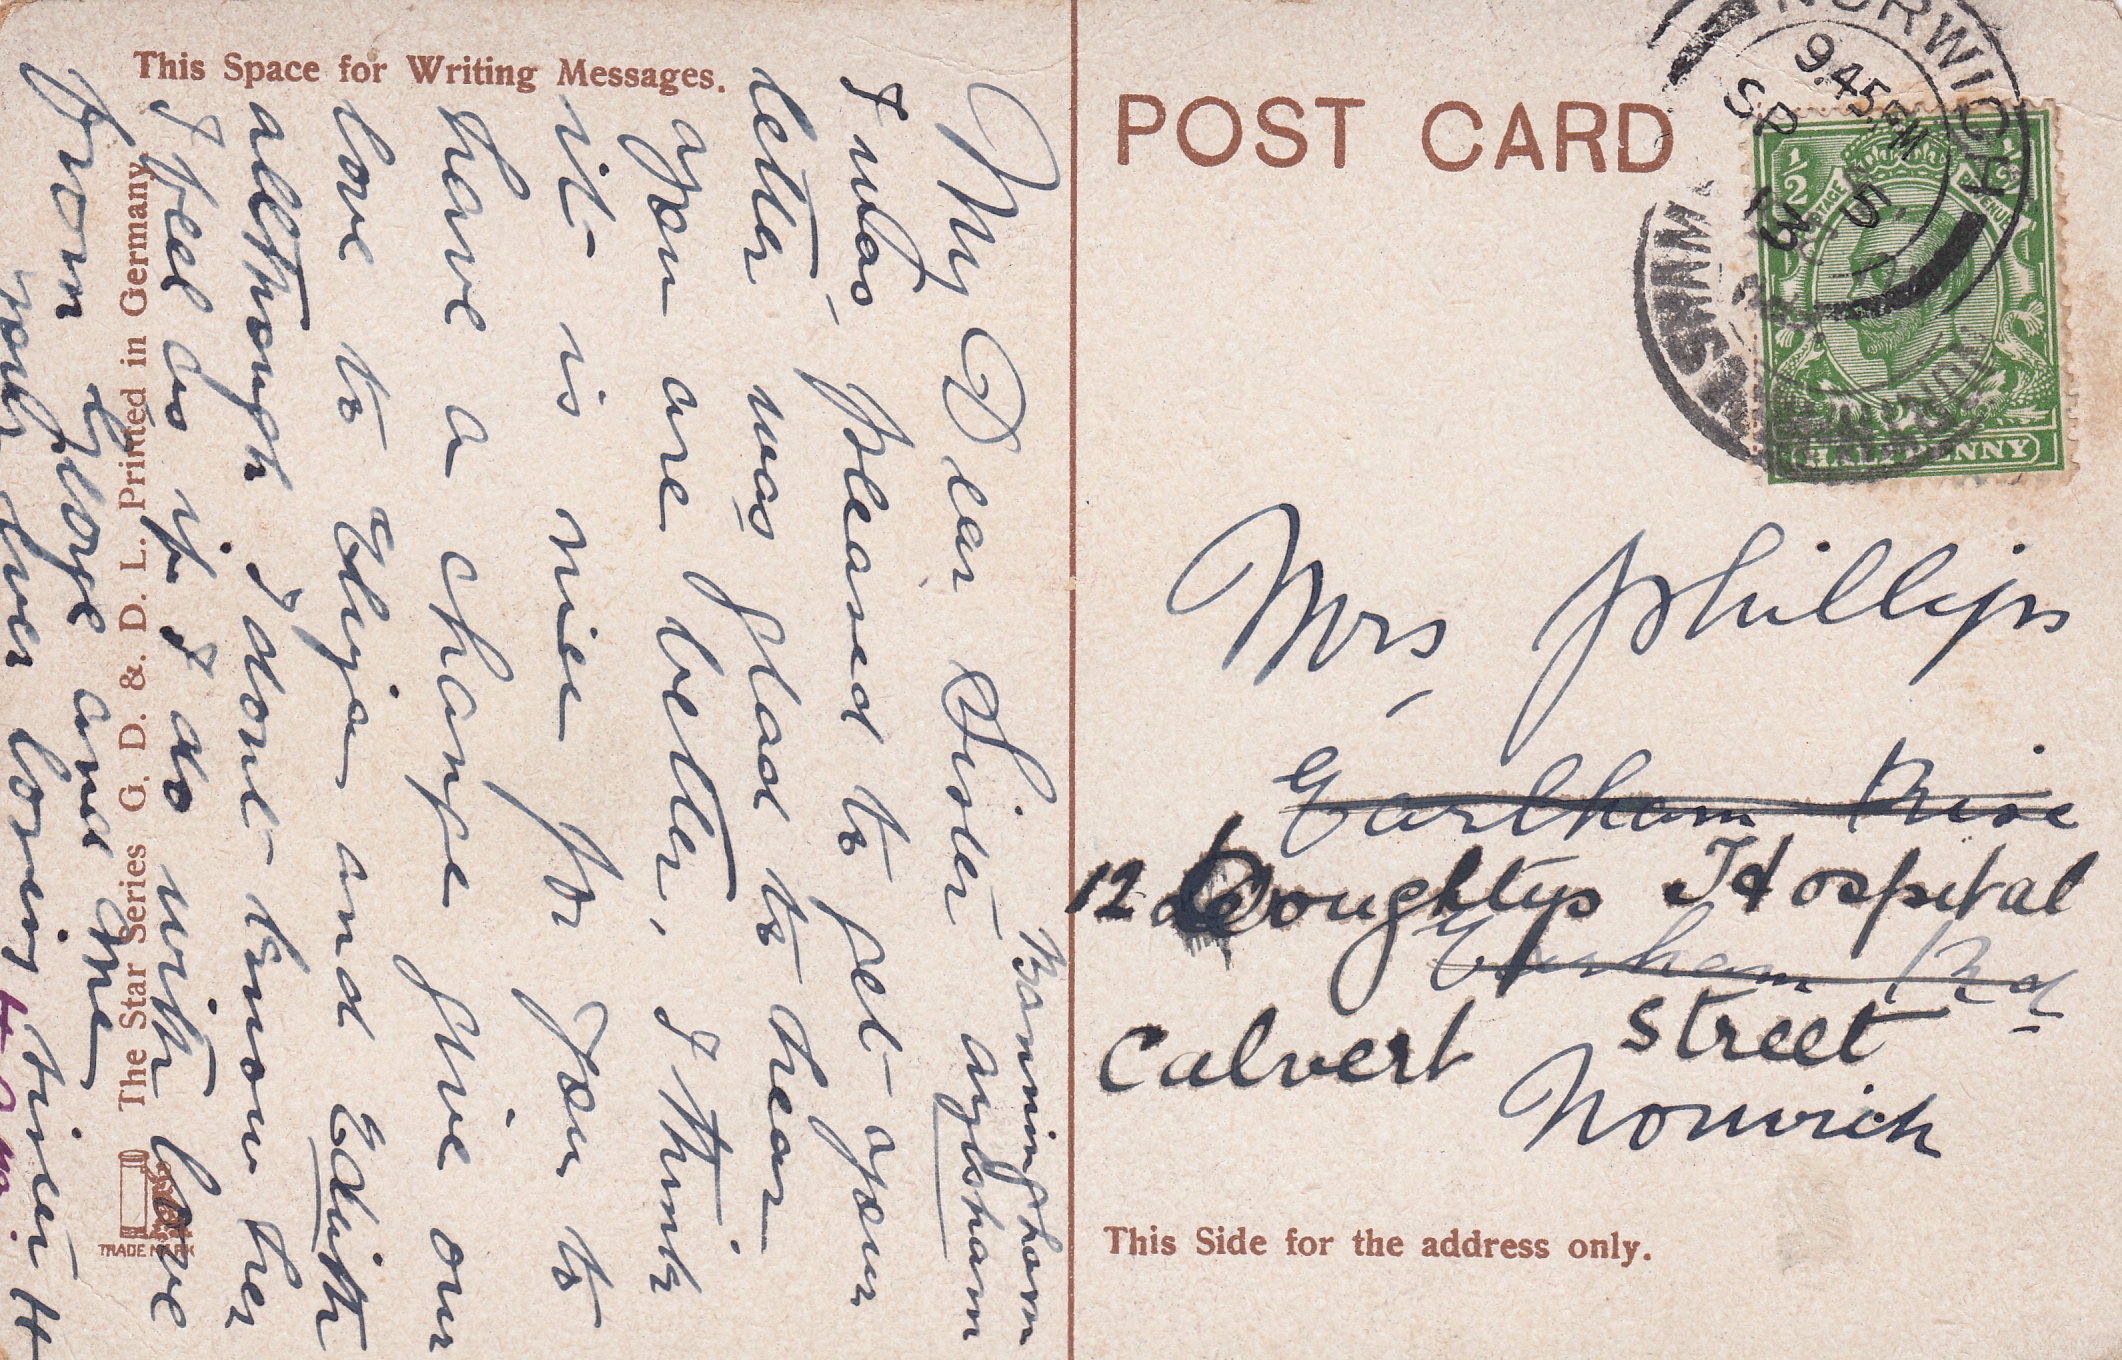 This Space for Writing Messages.
Banningham
Aylsham
My Dear Sister
I was pleased to get your
letter was glad to hear
you are better, I think
it is nice for you to
have a change give our
love to Elija and Edith
allthough I dont know her
I feel as if I do with love
from George and me
your ever loving sister H
The Star Series G. D. & D. L. Printed in Germany
TRADE MARK
POST CARD
NORWICH
9.45 PM
SP 5
13
HALFPENNY
Mrs Phillips
Earlham Rise
12 Doughtys Hospital
Earlham Rd
Calvert Street
Norwich
This Side for the address only.